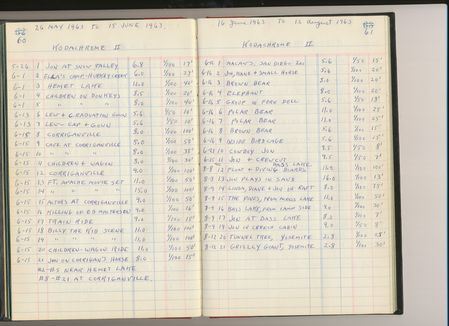 26 MAY 1963 TO 15 JUNE 1963
60
KODACHROME II
5-26 1 JON AT SNOW VALLEY 6.8 1/100 15'
6-1 2 CAMP HUBERT EERRY 6.0
6-1 3 HEMET LAKE 11.0 1/100
6-1 4 CHILDREN ON DONKEYS 1/100 20'
6-1 5 " " " 8.0 1/100
6-13 6 LEW & GRADUATION GOWN 5.6 1/50 10'
6-13 7 LEW - CAP & GOWN 5.6 1/50
6-15 8 CORRIGANVILLE 8.0 1/100
6-15 9 CAFE AT CORRIGANVILLE 8.0 1/100 50'
6-15 10 " " 8.0 1/100 30'
6-15 11 CHILDREN & WAGON 8.0 1/100 30'
6-15 12 CORRIGANVILLE 9.0 1/100 100'
6-15 13 FT. APACHE MOVIE SET 11.0 1/100 50'
6-15 14 " " " 15.0 1/100 100'
6-15 15 ACTORS AT CORRIGANVILLE 9.0 1/100 50'
6-15 16 KILLING OF ED 9.0 1/100
6-15 17 TRAIN RIDE 9.0 1/100 15'
6-15 18 BILLY THE KID SCENE 11.0 1/100 100'
6-15 19 " " " " 11.0 1/100 100'
6-15 20 CHILDREN-WAGON RIDE 11.0 1/100 50'
6-15 21 JON ON CORRIGAN'S HORSE 8.0 1/100 15'
#2-#5 NEAR HEMET LAKE
#8-#21 AT CORRIGANVILLE
16 June 1963 TO 12 August 1963
61
KODACHROME II
6-16 1 MACAWS, SAN DIEGO ZOO 5.6 1/50 15'
6-16 2 JON, & SMALL HORSE 8.0 1/100 20'
6-16 3 BROWN BEAR 5.6 1/50 20'
6-16 4 ELEPHANT 8.0 1/100 20'
6-16 5 GROUP IN FERN DELL 5.6 1/50 15'
6-16 6 POLAR BEAR 11.0 1/100 25'
6-16 7 POLAR BEAR 11.0 1/100 25'
6-16 8 BROWN BEAR 5.6 1/100 15'
6-16 9 INSIDE BIRDCAGE 5.6 1/50 15'
6-21 10 COWBOY JON 9.5 1/50 8'
6-25 11 JON & CREWCUT 9.5 1/50 7'
BASS LAKE
8-8 12 FLOAT & DIVING BOARDS 16.0 1/100 100'
8-8 13 JON PLAYS IN SAND 16.0 1/100 15'
8-9 14 LINDA, DIANE & JON IN RAFT 8.0 1/100 75'
8-9 15 THE PINES, FROM ACROSS LAKE 11.0 1/100
8-9 16 BASS LAKE, FROM CAMP SIDE 9.0 1/100
8-9 17 JON AT BASS LAKE 8.0 1/100 7'
8-9 18 JON IN CABIN 9.0 1/50 8'
8-12 20 TUNNEL TREE, YOSEMITE 2.8 1/100 25'
8-12 21 GRIZZLY GIANT, YOSEMITE 2.8 1/100 30'